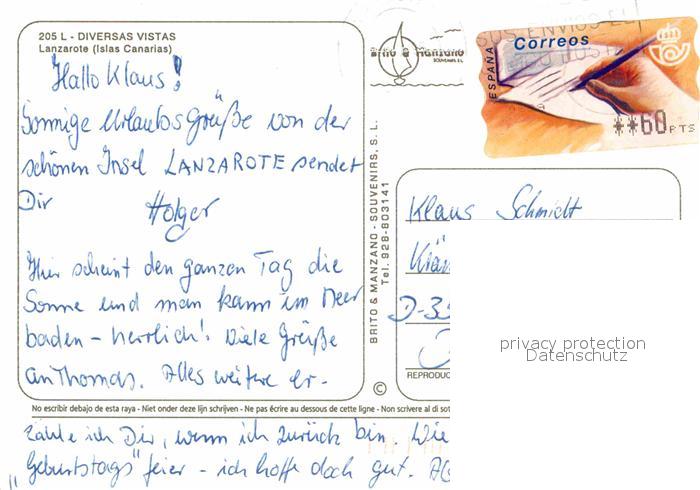 205 L - DIVERSAS VISTAS
Lanzarote (Islas Canarias)
Hallo Klaus!
Sonnige Urlaubsgrüße von der
schönen Insel LANZAROTE sendet
Dir Holger
Hier scheint den ganzen Tag die
Sonne und man kann im Meer
baden - herrlich! Viele Grüße
an Thomas. Alles weitere er-
zähle ich Dir, wenn ich zurück bin. Wie
"Geburtstags"feier - ich hoffe doch gut.
Brito & Manzano
SOUVENIRS S.L.
BRITO & MANZANO - SOUVENIRS, S. L.
Tel. 928-803141
©
ESPAÑA
Correos
**60 PTS
Klaus Schmidt
D-35
privacy protection
Datenschutz
REPRODUC
No escribir debajo de esta raya - Niet onder deze lijn schrijven - Ne pas écrire au dessous de cette ligne - Non scrivere al di sot